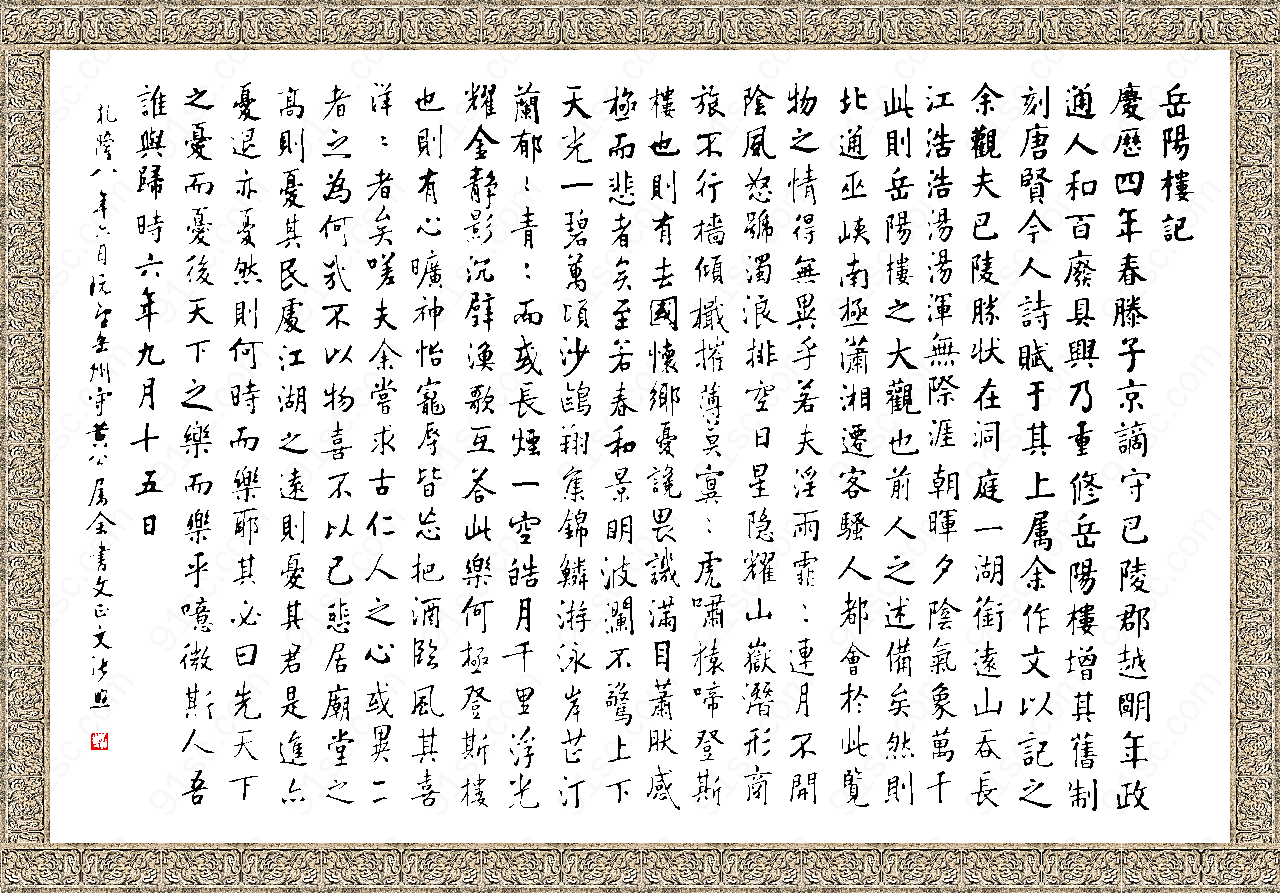 岳陽樓記
慶歷四年春滕子京謫守巴陵郡越明年政
通人和百廢具興乃重修岳陽樓增其舊制
刻唐賢今人詩賦于其上属余作文以記之
余觀夫巴陵勝状在洞庭一湖銜遠山吞長
江浩浩湯湯渾無際涯朝暉夕陰氣象萬千
此則岳陽樓之大觀也前人之述備矣然則
北通巫峡南極瀟湘遷客騷人都會於此覽
物之情得無異乎若夫淫雨霏:連月不開
陰風怒號濁浪排空日星隐耀山嶽潛形商
旅不行檣傾檝摧薄莫冥:虎嘯猿啼登斯
樓也則有去國懷鄉憂讒畏譏滿目蕭肰感
極而悲者矣至若春和景明波瀾不驚上下
天光一碧萬頃沙鷗翔集錦鱗游泳岸芷汀
蘭郁:青:而或長煙一空皓月千里浮光
耀金静影沉璧漁歌互荅此樂何極登斯樓
也則有心曠神怡寵辱皆忘把酒臨風其喜
洋:者矣嗟夫余嘗求古仁人之心或異二
者之為何哉不以物喜不以己悲居廟堂之
高則憂其民處江湖之遠則憂其君是進亦
憂退亦憂然則何時而樂耶其必曰先天下
之憂而憂後天下之樂而樂乎噫微斯人吾
誰與歸時六年九月十五日
乾隆八年六月沅岳州守黄公属余書文正文張照